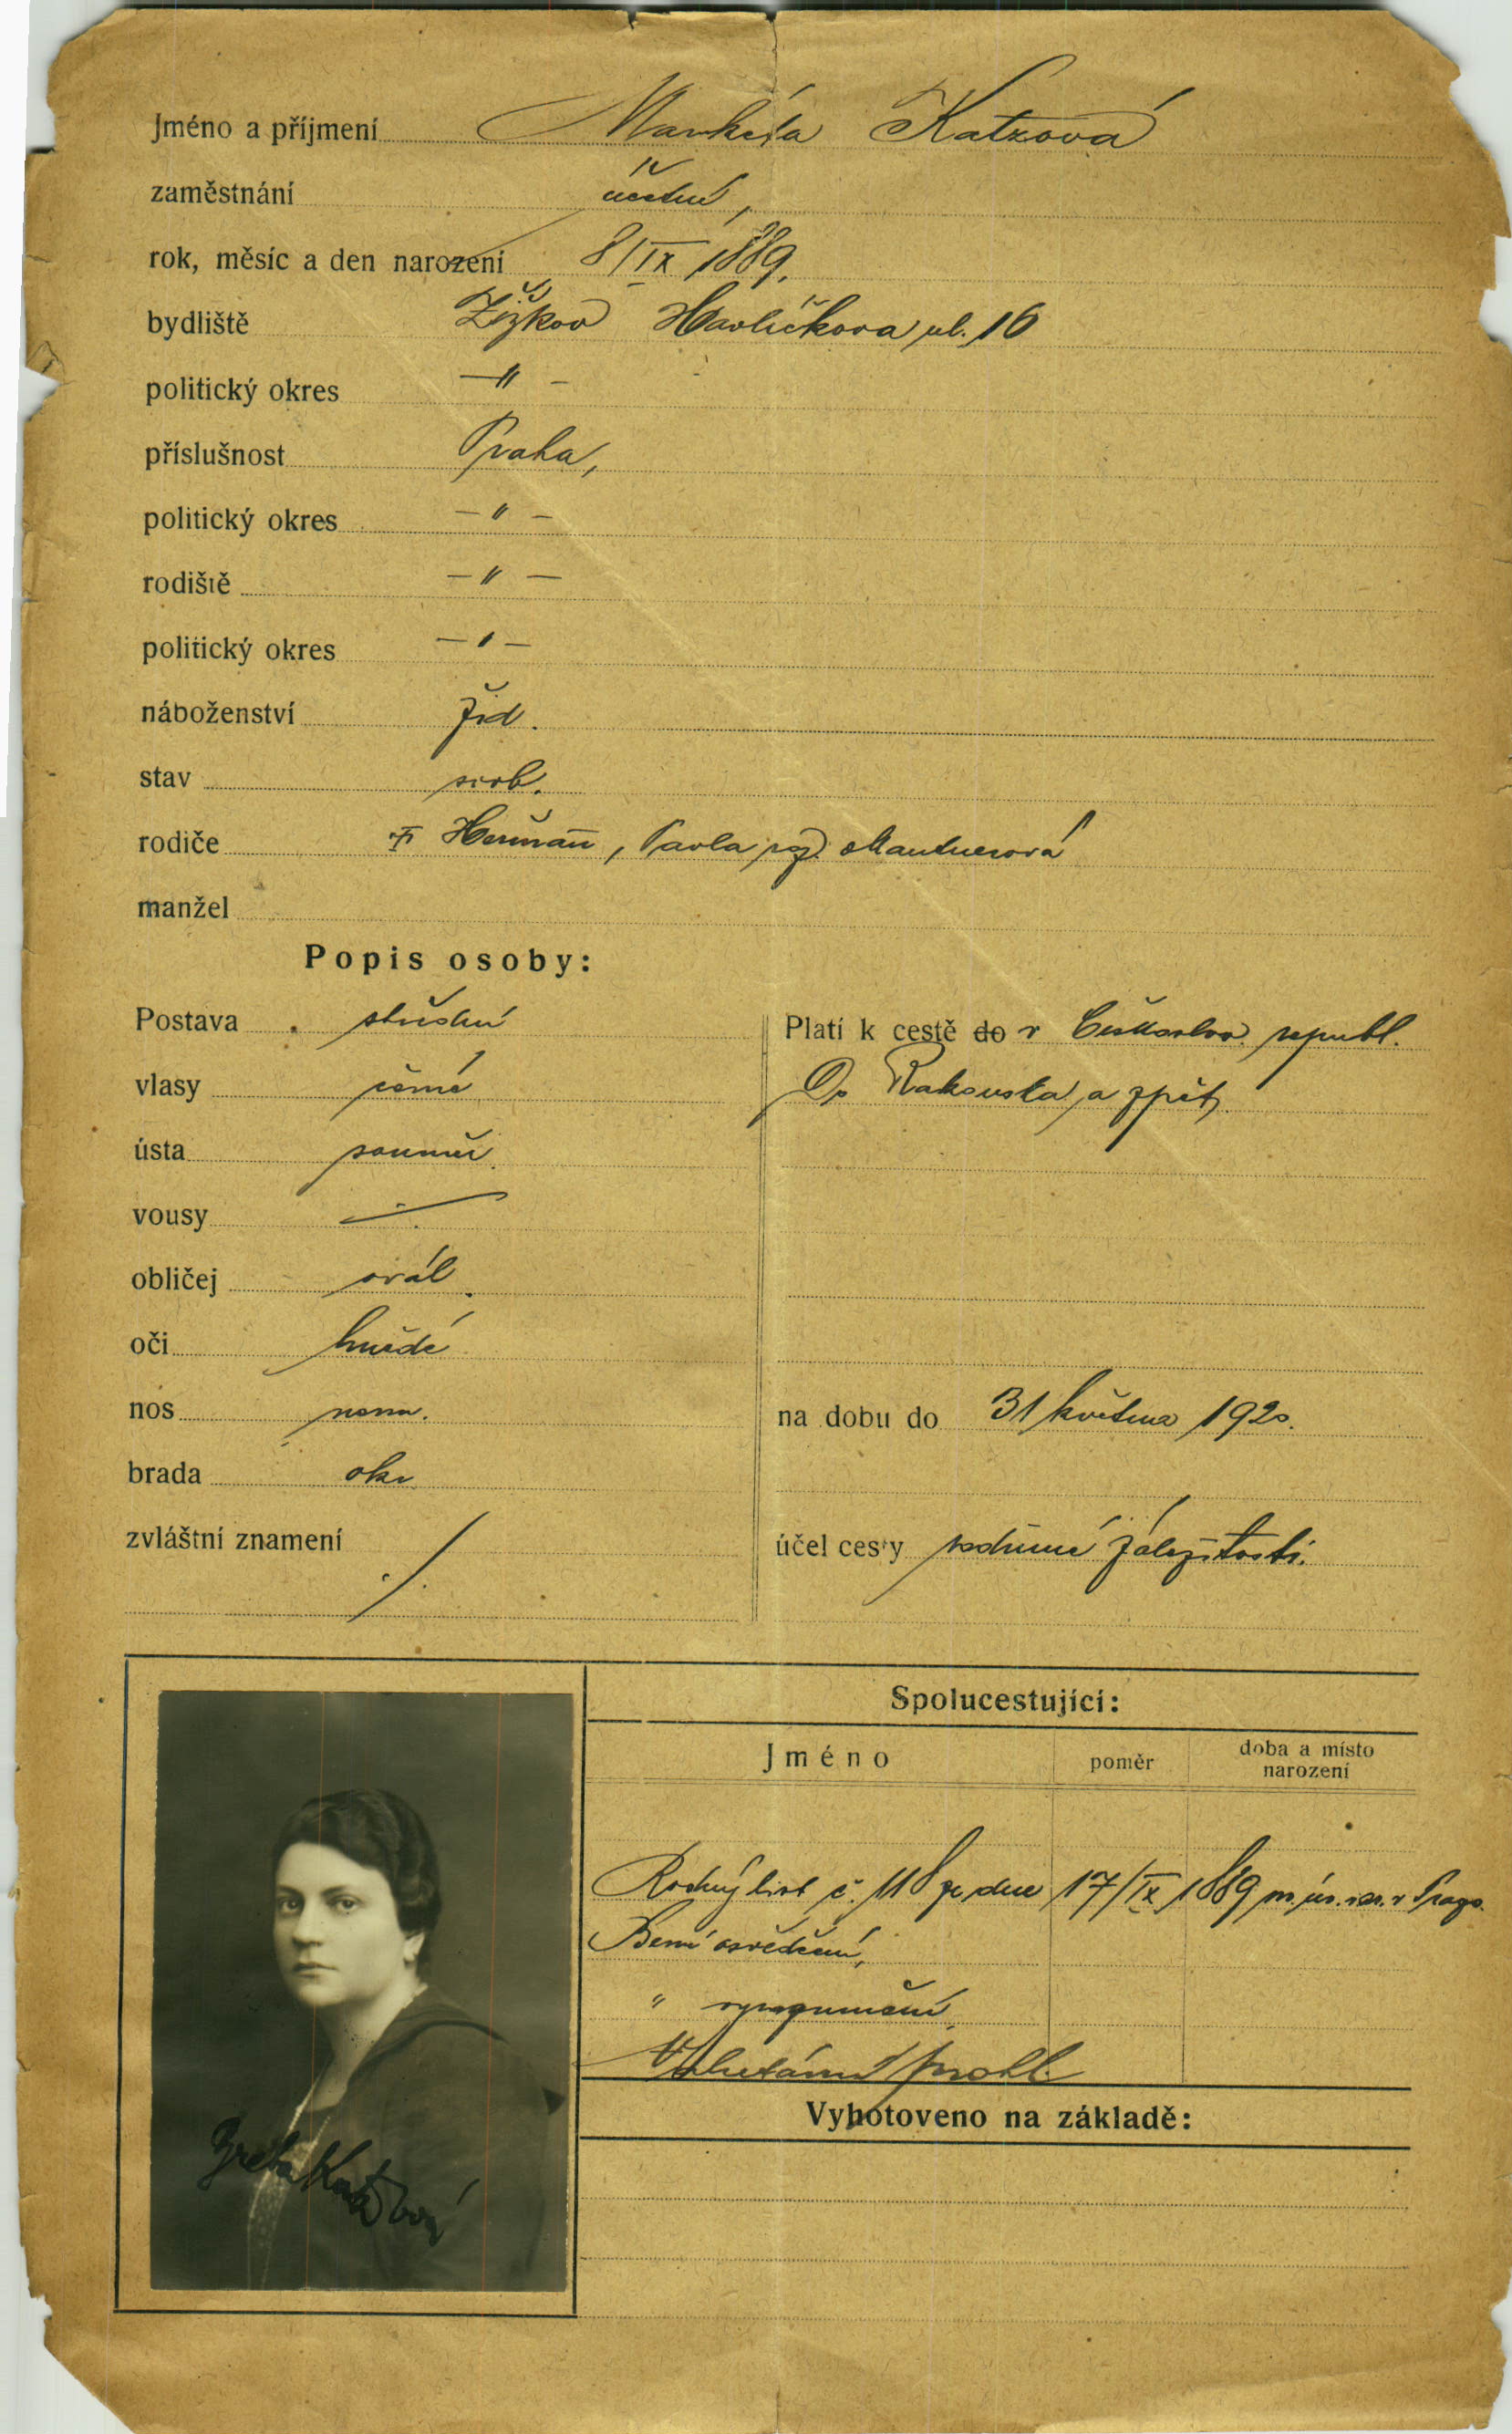 Jméno a příjmení Markéta Katzová
zaměstnání účetní,
rok, měsíc a den narození 8/IX 1889.
bydliště Žižkov Havlíčkova ul. 16
politický okres —"—
příslušnost Praha,
politický okres —"—
rodiště —"—
politický okres —"—
náboženství žid.
stav svob.
rodiče † Heřman, Pavla roz. Mautnerová
manžel
Popis osoby:
Postava střední
vlasy černé
ústa souměr.
vousy
obličej ovál.
oči hnědé
nos norm.
brada okr.
zvláštní znamení ./.
Platí k cestě do v Českoslov. republ.
Do Rakouska a zpět.
na dobu do 31 května 1920.
účel cesty rodinné záležitosti.
Spolucestující:
Jméno
poměr
doba a místo
narození
Rodný list č. 118 ze dne 17/IX 1889 v Praze.
Berní osvědčení,
" vyrozumění,
prohl.
Vyhotoveno na základě:
Greta Katzová